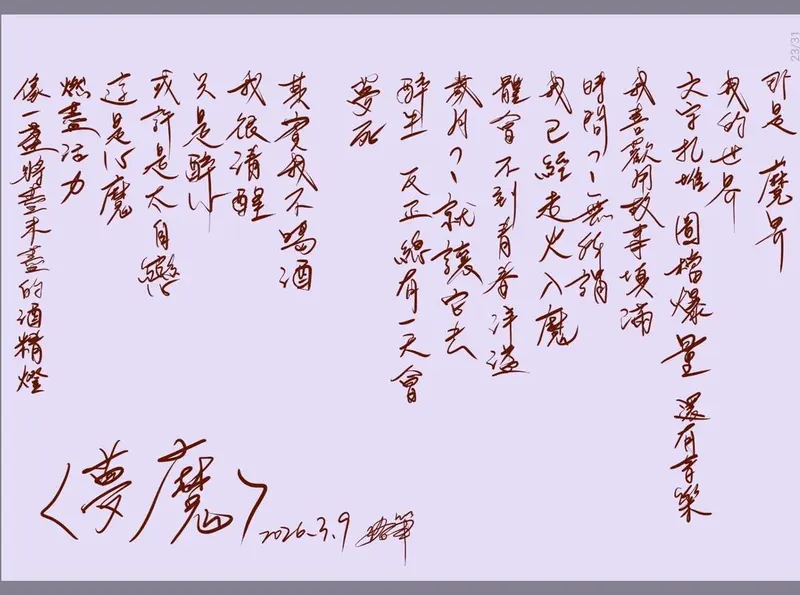 那是 魔界
我的世界
文字扎堆 圖檔爆量 還有音樂
我喜歡用故事填滿
時間ㄟ無所謂
我已經走火入魔
體會不到青春洋溢
歲月ㄟ就讓它去
醉生 反正總有一天會
夢死
其實我不喝酒
我很清醒
只是醉心
或許是太自戀
這是心魔
燃盡活力
像一盞將盡未盡的酒精燈
〈夢魔〉
2026.3.9
23/31